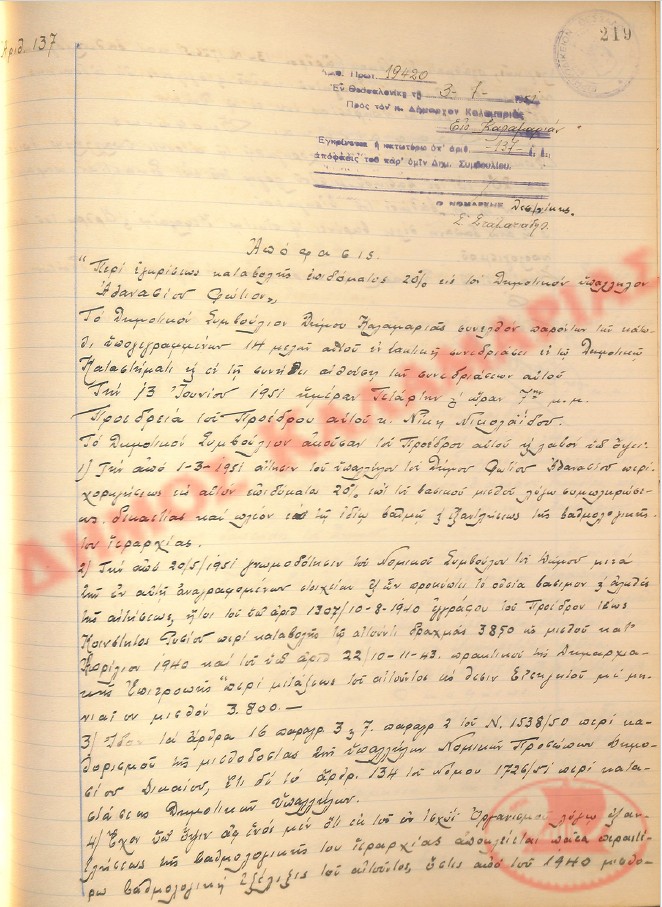 Αριθ. 137
219
Αριθ. Πρωτ. 19420
Ἐν Θεσσαλονίκῃ τῇ 3-7-1951
Πρὸς τὸν κ. Δήμαρχον Καλαμαριᾶς
Εἰς Καλαμαριάν
Ἐγκρίνεται ἡ κατωτέρω ὑπ' ἀριθ. -137-
ἀπόφασις τοῦ παρ' ὑμῖν Δημ. Συμβουλίου.
Ο ΝΟΜΑΡΧΗΣ Θεσ/νίκης
Ἀπόφασις.
"Περὶ ἐγκρίσεως καταβολῆς ἐπιδόματος 20% εἰς τὸν Δημοτικὸν ὑπάλληλον
Ἀθανασίου Φώτιον„
Τὸ Δημοτικὸν Συμβούλιον Δήμου Καλαμαριᾶς συνελθὸν παρόντων τῶν κάτω-
θι ὑπογεγραμμένων 14 μελῶν αὐτοῦ ἐν τακτικῇ συνεδριάσει ἐν τῷ Δημοτικῷ
Καταστήματι καὶ ἐν τῇ συνήθει αἰθούσῃ τῶν συνεδριάσεων αὐτοῦ
Τὴν 13 Ἰουνίου 1951 ἡμέραν Τετάρτην καὶ ὥραν 7ην μ.μ.
Προεδρεία τοῦ Προέδρου αὐτοῦ κ. Νίκη Νικολαΐδου.
Τὸ Δημοτικὸν Συμβούλιον ἀκοῦσαν τοῦ Προέδρου αὐτοῦ καὶ λαβὸν ὑπ' ὄψει:
1) Τὴν ἀπὸ 1-3-1951 αἴτησιν τοῦ ὑπαλλήλου τοῦ Δήμου Φωτίου Ἀθανασίου περὶ
χορηγήσεως εἰς αὐτὸν ἐπιδόματος 20% ἐπὶ τοῦ βασικοῦ μισθοῦ λόγῳ συμπληρώσε-
ως δεκαετίας καὶ πλέον εἰς τῷ ἰδίῳ βαθμῷ καὶ ἐξαντλήσεως τῆς βαθμολογικῆς
του ἱεραρχίας.
2) Τὴν ἀπὸ 20/5/1951 γνωμοδότησιν τοῦ Νομικοῦ Συμβούλου τοῦ Δήμου μετὰ
τῶν ἐν αὐτῇ ἀναγραφομένων στοιχείων ἐξ ὧν προκύπτει τὸ οὐσίᾳ βάσιμον καὶ ἀληθὲς
τῆς αἰτήσεως, ἤτοι τοῦ ὑπ' ἀριθ 1307/10-8-1940 ἐγγράφου τοῦ Προέδρου τέως
Κοινότητος Ρυσίου περὶ καταβολῆς τῷ αἰτοῦντι δραχμὰς 3850 ὡς μισθοῦ κατὰ
Ἀπρίλιον 1940 καὶ τοῦ ὑπ' ἀριθ 22/10-11-43. πρακτικοῦ τῆς Δημαρχια-
κῆς Ἐπιτροπῆς "περὶ μετάξεως τοῦ αἰτοῦντος εἰς θέσιν Εἰσηγητοῦ μὲ μη-
νιαῖον μισθὸν 3.800.—
3) Ἰδὸν τὰ ἄρθρα 16 παραγρ 3 καὶ 7. παραγρ 2 τοῦ Ν. 1538/50 περὶ κα-
θορισμοῦ τῆς μισθοδοσίας τῶν ὑπαλλήλων Νομικῶν Προσώπων Δημο-
σίου Δικαίου, ἔτι δὲ τὸ ἄρθρ. 134 τοῦ νόμου 1726/51 περὶ κατα-
στάσεως Δημοτικῶν Ὑπαλλήλων.
4) Ἔχον ὑπ' ὄψιν ἀφ' ἑνὸς μὲν ὅτι ἐκ τοῦ ἐν ἰσχύι Ὀργανισμοῦ λόγῳ ἐξαν-
τλήσεως τῆς βαθμολογικῆς του ἱεραρχίας ἀποκλείεται πᾶσα περαιτέ-
ρω βαθμολογικὴ ἐξέλιξις τοῦ αἰτοῦντος, ὅστις ἀπὸ τοῦ 1940 μισθο-
ΔΗΜΟΣ ΚΑΛΑΜΑΡΙΑΣ